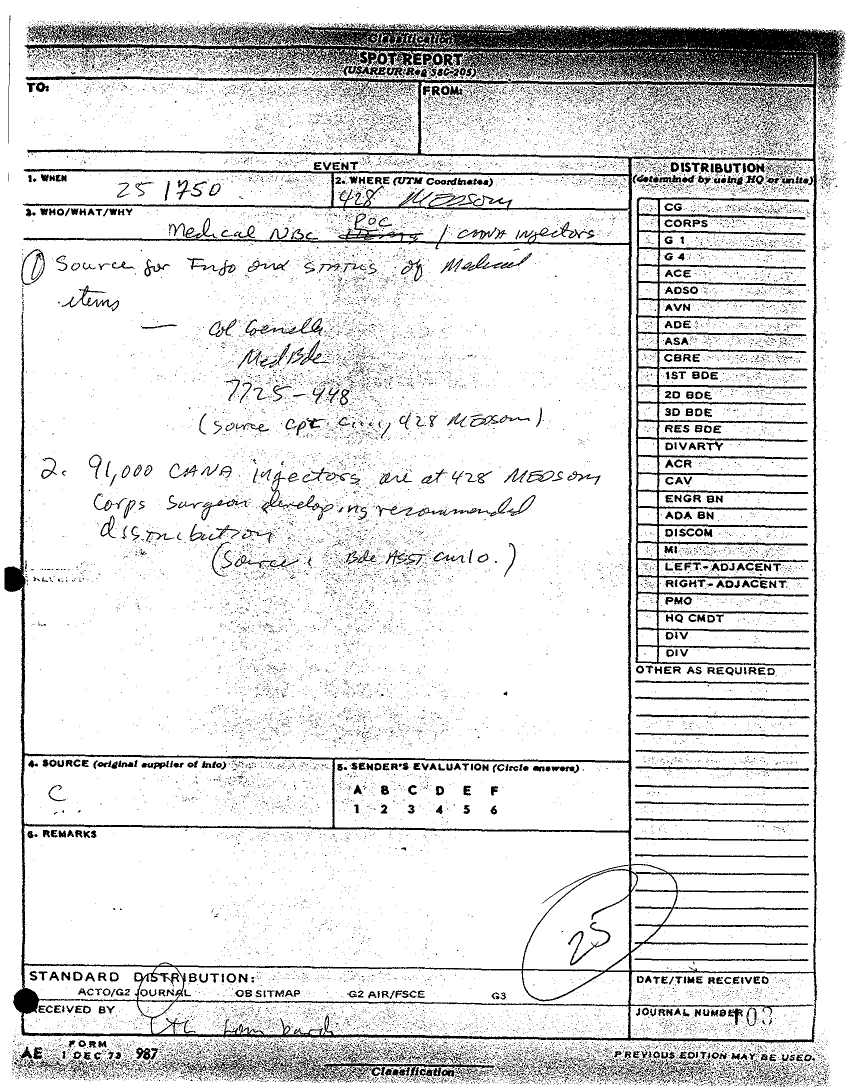 Classification
SPOT REPORT
(USAREUR Reg 380-205)
TO:
FROM:
EVENT
1. WHEN
25 1750
2. WHERE (UTM Coordinates)
428 MEDSOM
3. WHO/WHAT/WHY
Medical NBC POC / CANA injectors
① Source for Info and STATUS of Medical
items
— Col
Med Bde
7725-448
(Source Cpt , 428 MEDSOM)
2. 91,000 CANA injectors are at 428 MEDSOM
Corps Surgeon developing recommended
distribution
(Source: Bde ASST )
RECEIVED
4. SOURCE (original supplier of info)
C
5. SENDER'S EVALUATION (Circle answers)
A B C D E F
1 2 3 4 5 6
6. REMARKS
25
STANDARD DISTRIBUTION:
ACTO/G2 JOURNAL OB SITMAP G2 AIR/FSCE G3
RECEIVED BY
DISTRIBUTION
(determined by using HQ or units)
CG
CORPS
G 1
G 4
ACE
ADSO
AVN
ADE
ASA
CBRE
1ST BDE
2D BDE
3D BDE
RES BDE
DIVARTY
ACR
CAV
ENGR BN
ADA BN
DISCOM
MI
LEFT-ADJACENT
RIGHT-ADJACENT
PMO
HQ CMDT
DIV
DIV
OTHER AS REQUIRED
DATE/TIME RECEIVED
JOURNAL NUMBER 103
AE FORM 1 DEC 73 987
PREVIOUS EDITION MAY BE USED.
Classification